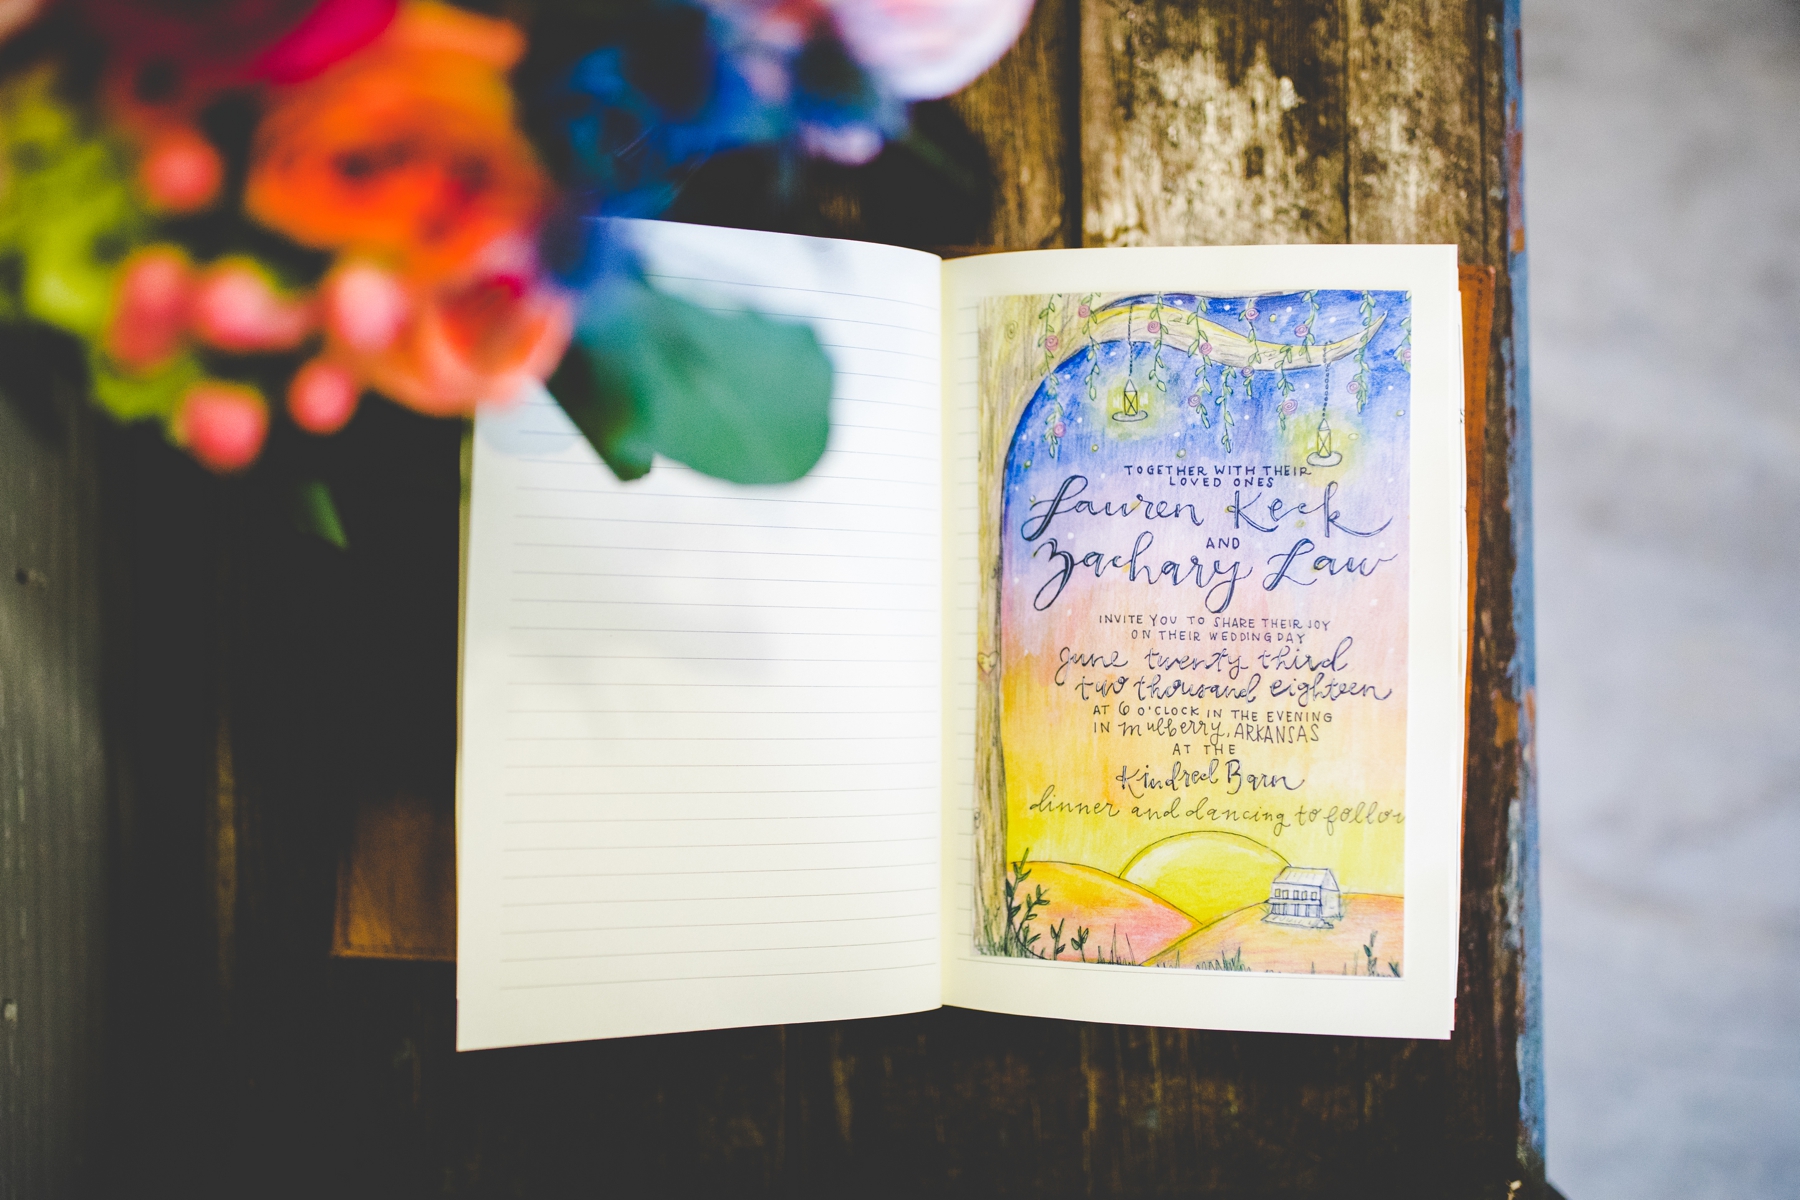 TOGETHER WITH THEIR
LOVED ONES
Lauren Keck
AND
Zachary Law
INVITE YOU TO SHARE THEIR JOY
ON THEIR WEDDING DAY
june twenty third
two thousand eighteen
AT 6 O'CLOCK IN THE EVENING
IN mulberry, ARKANSAS
AT THE
Kindred Barn
dinner and dancing to follow